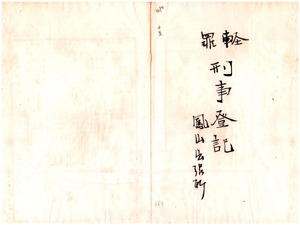 輕罪
刑事登記
鳳山出張所